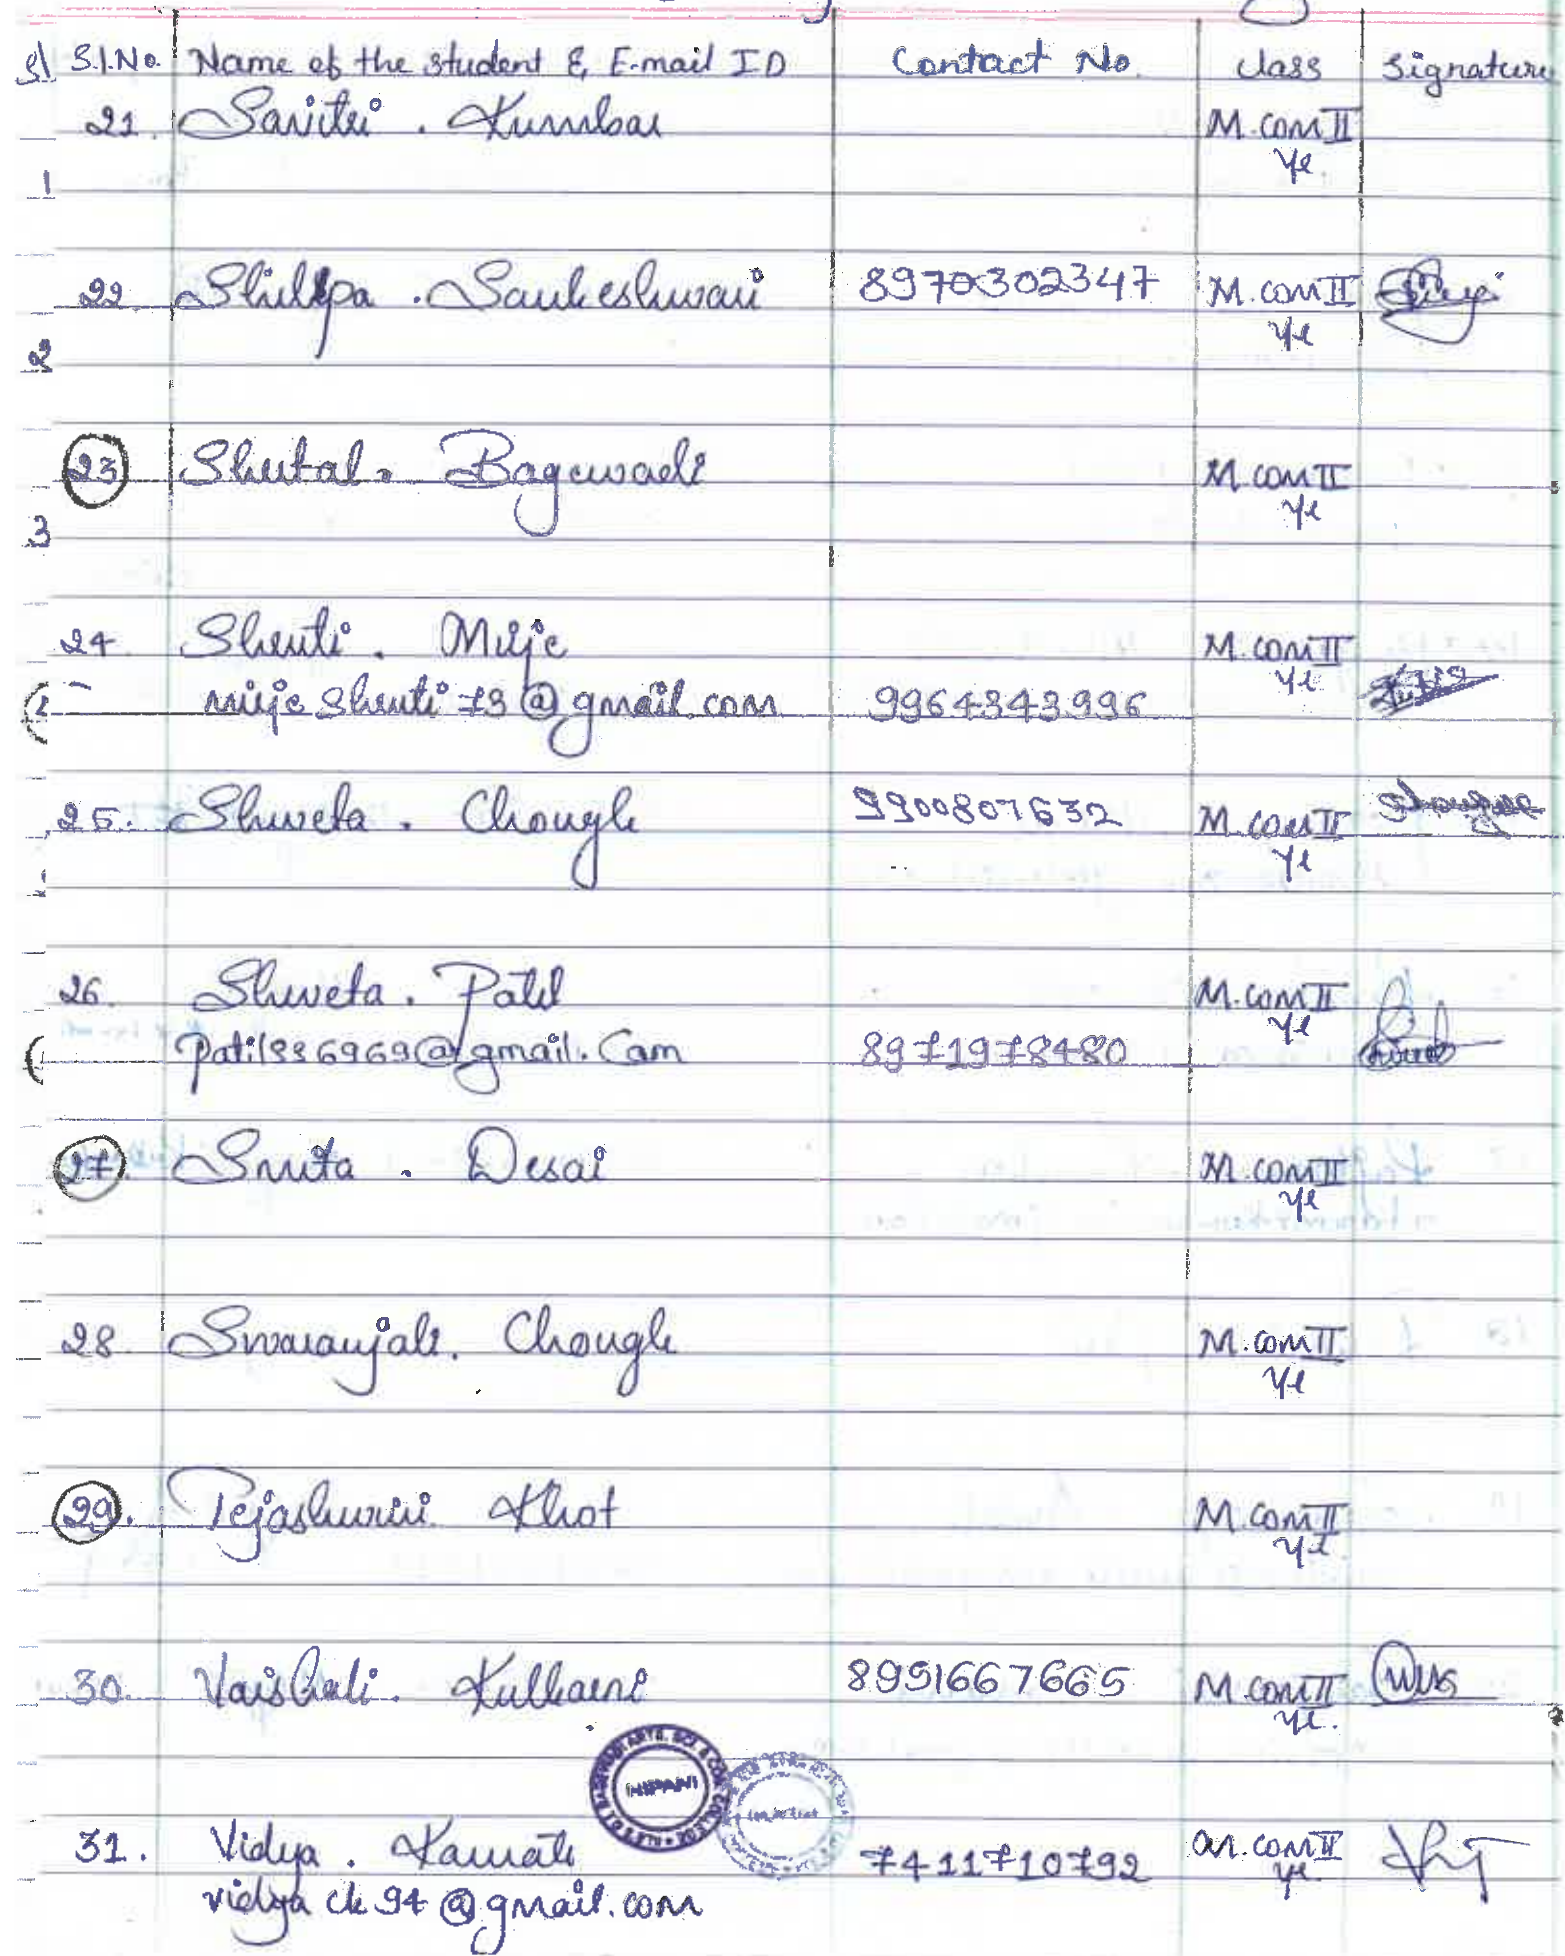 Sl S.l.No. Name of the student & E-mail ID Contact No. Class Signature
21. Savitri . Kumbar M.com II
yr.
1
22 Shilpa . Sankeshwari 8970302347 M.com II
yr
2
23 Shital. Bagewadi M.com II
yr
3
24. Shruti . Mirje M.com II
yr
mirjeshruti73@gmail.com 9964343996
25. Shweta . Chougle 9900807632 M.com II Chougule
yr
26. Shweta . Patil M.com II
yr
patil996969@gmail.Com 8971978480
27. Smita . Desai M.com II
yr
28. Swaranjali. Chougle M.com II
yr
29. Tejashwini Khot M.com II
yr
30. Vaishali. Kulkarni 8951667665 M.com II
yr.
NIPANI
31. Vidya . Kamate 7411710792 M.com II
yr.
vidya ck 94 @gmail.com